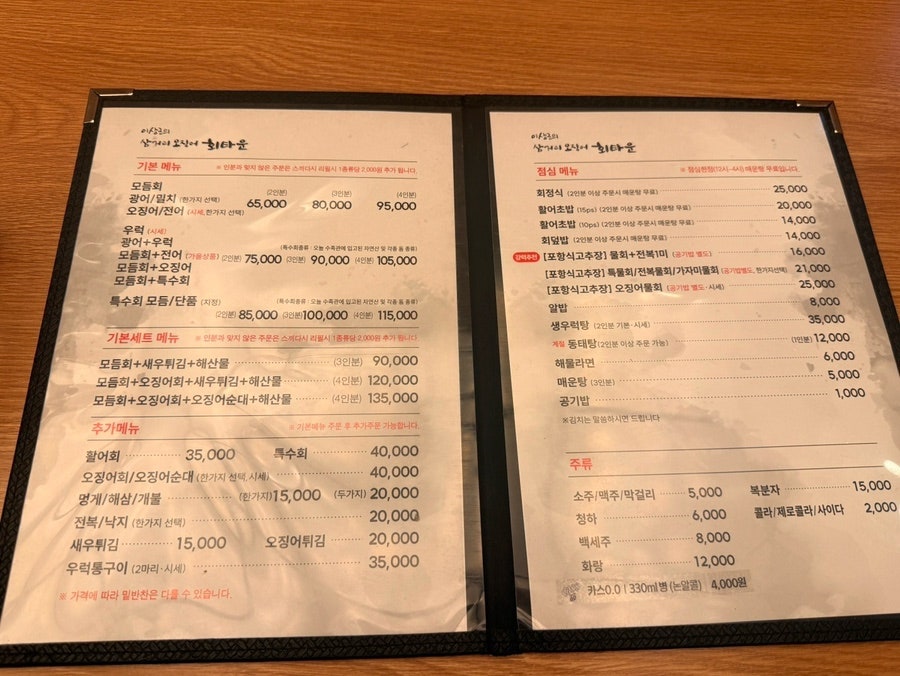 이상근의
삼거리 오징어 회타운
기본 메뉴 ※ 인분과 맞지 않은 주문은 스끼다시 리필시 1종류당 2,000원 추가 됩니다.
모듬회
광어/밀치 (한가지 선택) (2인분) 65,000 (3인분) 80,000 (4인분) 95,000
오징어/전어 (시세,한가지 선택)
우럭 (시세)
광어+우럭 (특수회종류 : 오늘 수족관에 입고된 자연산 및 각종 돔 종류)
모듬회+전어 (가을상품) (2인분) 75,000 (3인분) 90,000 (4인분) 105,000
모듬회+오징어
모듬회+특수회
특수회 모듬/단품 (지정) (특수회종류 : 오늘 수족관에 입고된 자연산 및 각종 돔 종류)
(2인분) 85,000 (3인분) 100,000 (4인분) 115,000
기본세트 메뉴 ※ 인분과 맞지 않은 주문은 스끼다시 리필시 1종류당 2,000원 추가 됩니다.
모듬회+새우튀김+해산물 (3인분) 90,000
모듬회+오징어회+새우튀김+해산물 (4인분) 120,000
모듬회+오징어회+오징어순대+해산물 (4인분) 135,000
추가메뉴 ※ 기본메뉴 주문 후 추가주문 가능합니다.
활어회 35,000 특수회 40,000
오징어회/오징어순대 (한가지 선택, 시세) 40,000
멍게/해삼/개불 (한가지) 15,000 (두가지) 20,000
전복/낙지 (한가지 선택) 20,000
새우튀김 15,000 오징어튀김 20,000
우럭통구이 (2마리·시세) 35,000
※ 가격에 따라 밑반찬은 다를 수 있습니다.
이상근의
삼거리 오징어 회타운
점심 메뉴 ※ 점심한정(12시~4시) 매운탕 무료입니다.
회정식 (2인분 이상 주문시 매운탕 무료) 25,000
활어초밥 (15ps) (2인분 이상 주문시 매운탕 무료) 20,000
활어초밥 (10ps) (2인분 이상 주문시 매운탕 무료) 14,000
회덮밥 (2인분 이상 주문시 매운탕 무료) 14,000
강력추천 [포항식고추장] 물회+전복1미 (공기밥 별도) 16,000
[포항식고추장] 특물회/전복물회/가자미물회 (공기밥별도, 한가지선택) 21,000
[포항식고추장] 오징어물회 (공기밥 별도·시세) 25,000
알밥 8,000
생우럭탕 (2인분 기본·시세) 35,000
계절 동태탕 (2인분 이상 주문 가능) (1인분) 12,000
해물라면 6,000
매운탕 (3인분) 5,000
공기밥 1,000
※김치는 말씀하시면 드립니다
주류
소주/맥주/막걸리 5,000 복분자 15,000
청하 6,000 콜라/제로콜라/사이다 2,000
백세주 8,000
화랑 12,000
카스0.0 | 330ml 병 (논알콜) 4,000원